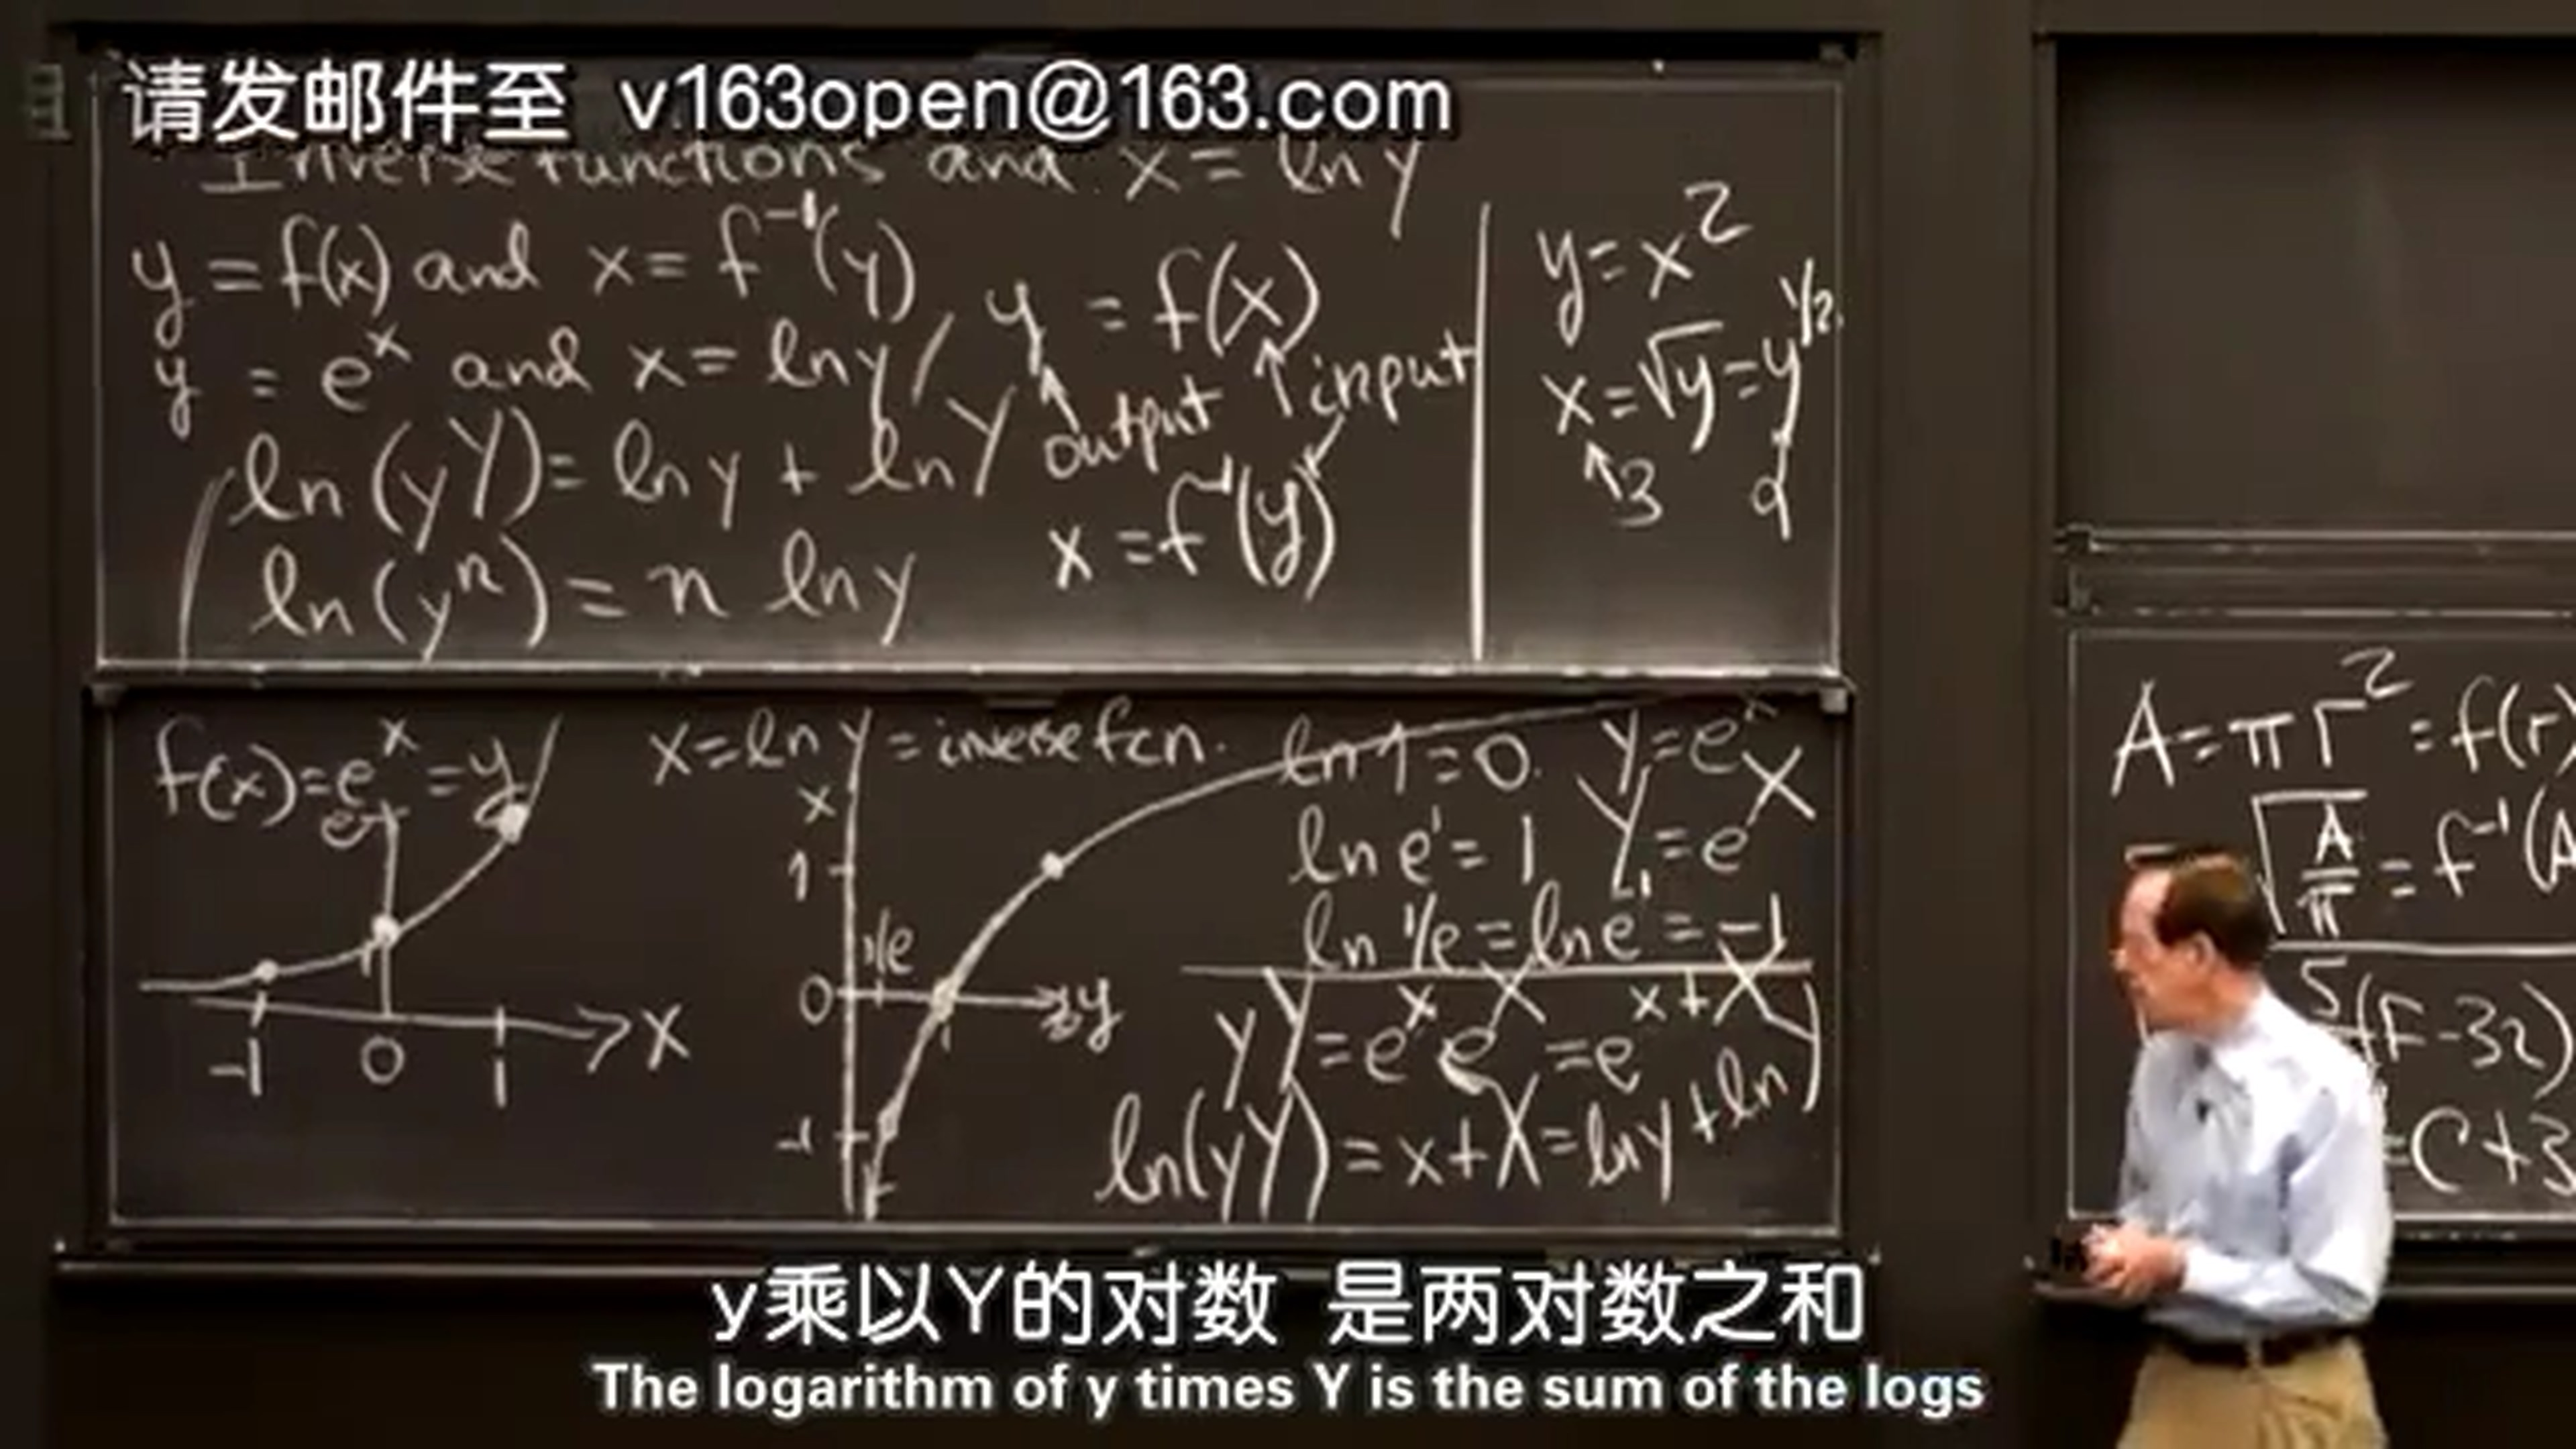 请发邮件至 v163open@163.com
Inverse functions and x = ln y
y = f(x) and x = f⁻¹(y)
y = eˣ and x = ln y
ln (yY) = ln y + ln Y
ln (yⁿ) = n ln y
y = f(x)
output
input
x = f⁻¹(y)
y = x²
x = √y = y^1/2
3
9
f(x) = eˣ = y
e
1
-1 0 1
x
x = ln y = inverse fcn.
x
1
1/e
0
1
y
-1
ln 1 = 0
ln e¹ = 1
ln 1/e = ln e⁻¹ = -1
y = eˣ
Y = e^X
yY = e^x e^X = e^x+X
ln(yY) = x + X = ln y + ln Y
A = πr² = f(r)
√A/π = f⁻¹(A
(F-32)
= C + 3
y乘以Y的对数 是两对数之和
The logarithm of y times Y is the sum of the logs